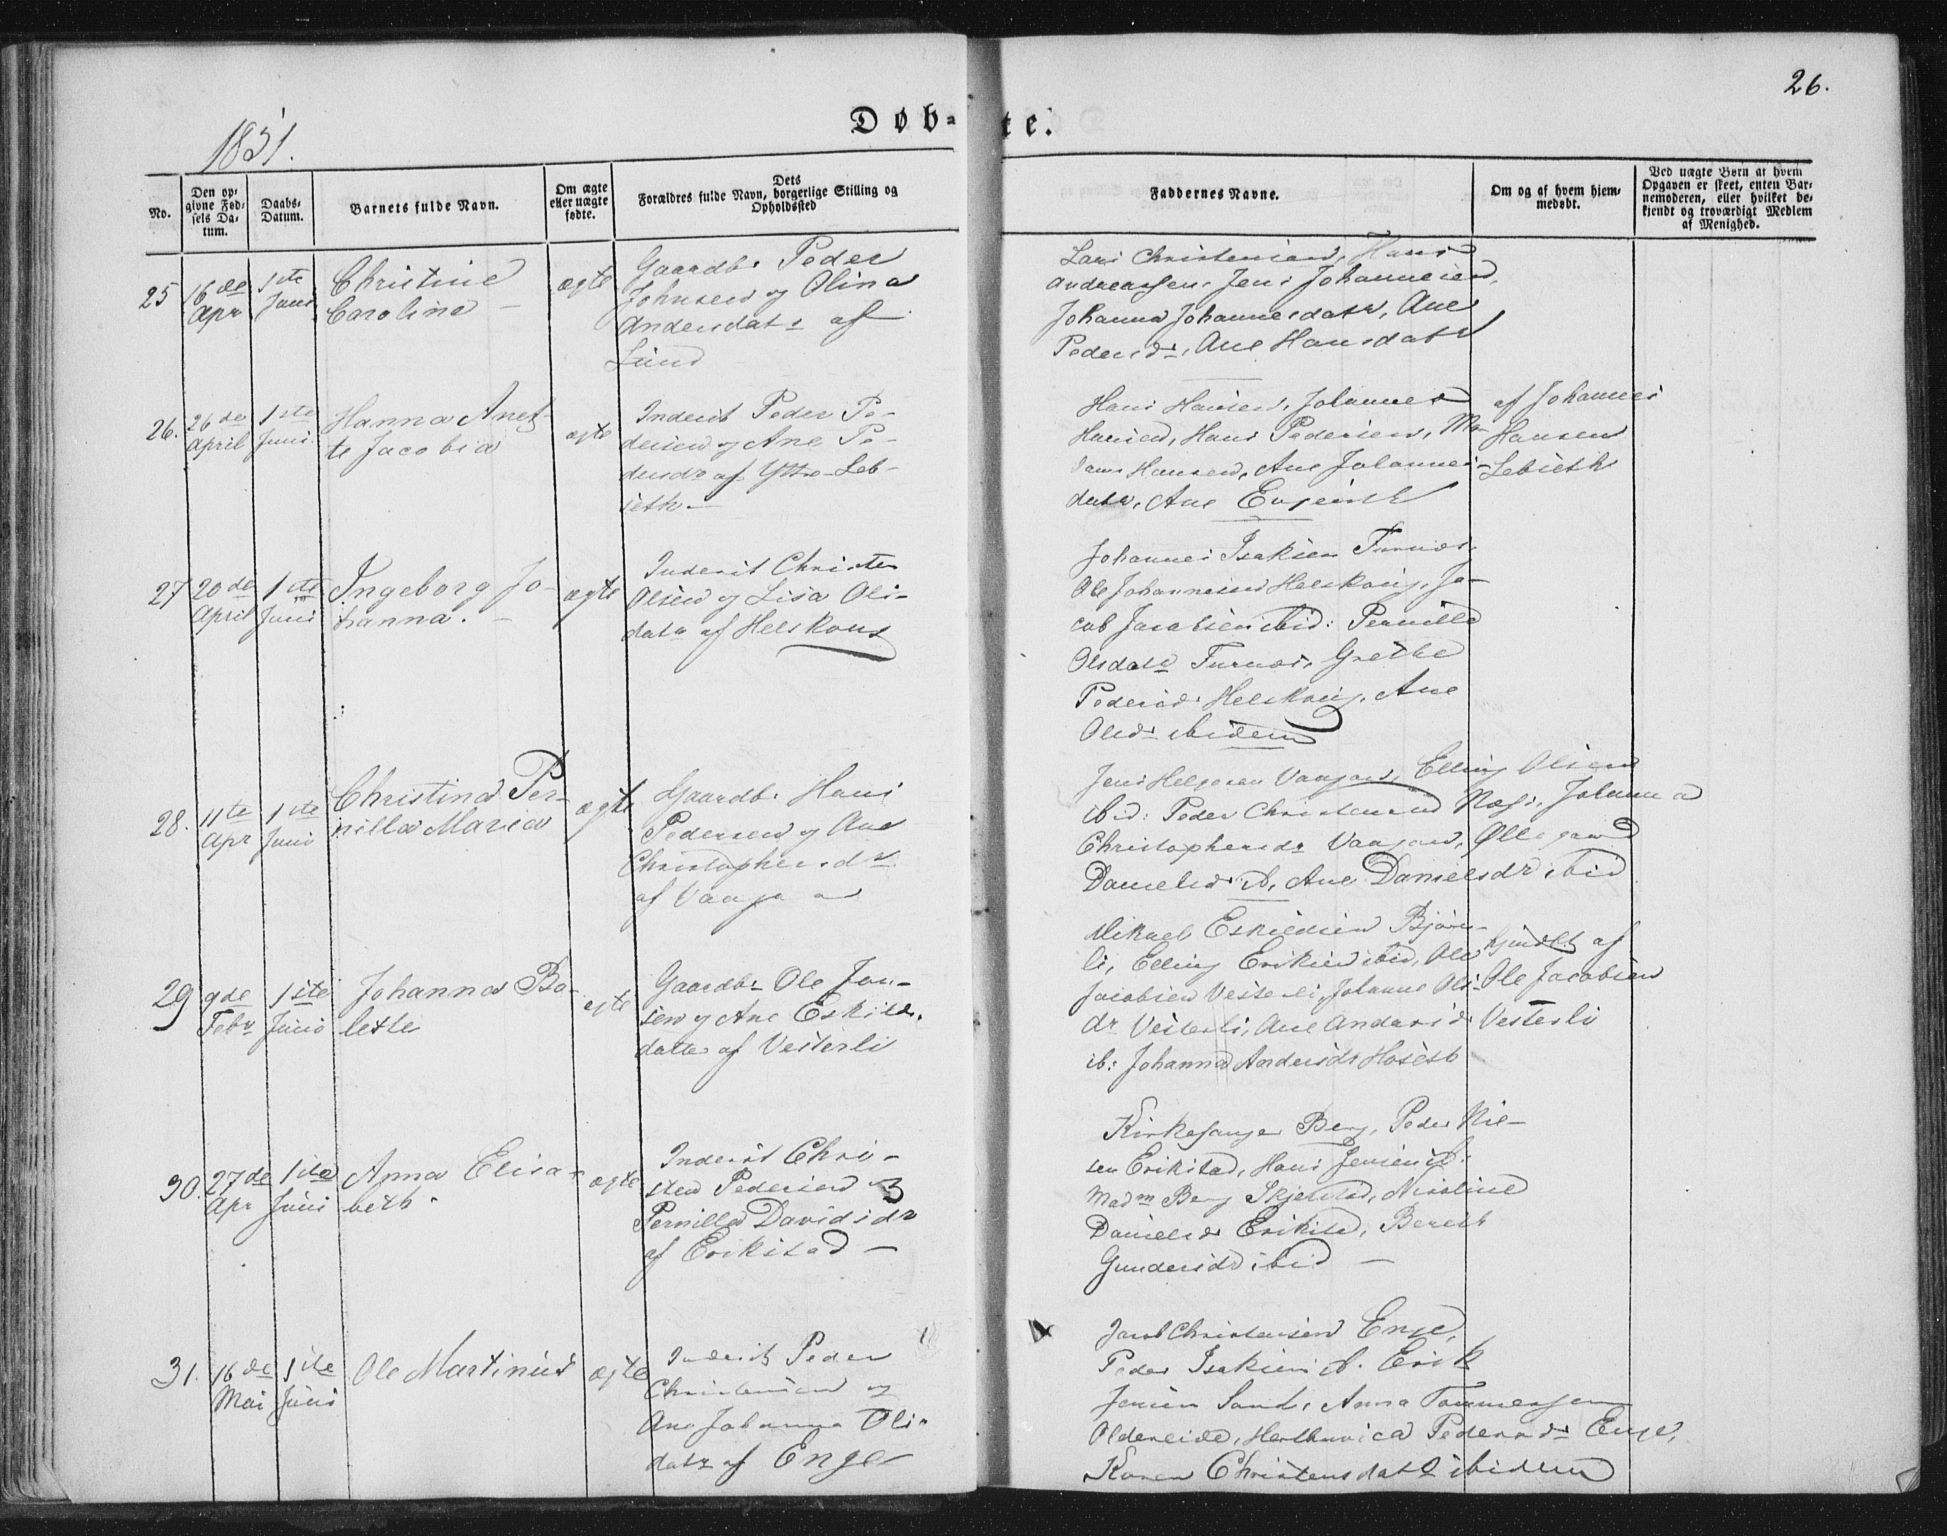 26.
1851.
Døb-te.
No.
Den opgivne Fødsels Datum.
Daabs-Datum.
Barnets fulde Navn.
Om ægte eller uægte fødte.
Dets Forældres fulde Navn, borgerlige Stilling og Opholdssted
Faddernes Navne.
Om og af hvem hjemmedøbt.
Ved uægte Børn at hvem Opgaven er skeet, enten Barnemoderen, eller hvilket bekjendt og troværdigt Medlem af Menighed.
25 16de Apr 1ste Juni
Christine
Carolina
ægte
Gaardbr Peder
Johnsen og Olina
Andersdatr af
Lund
Lars Christensen, Hans
Andreassen, Jens Johannesen,
Johanna Johannesdatr, Ane
Pedersdr, Ane Hansdatr
26. 26de April 1ste Juni
Hanna Anet-
te Jacobia
ægte
Inderst Peder Pe-
dersen og Ane Pe-
dersdr af Yttre-Leb-
sieth
Hans Hansen, Johannes
Hansen, Hans Pedersen, Ma-
dam Hansen, Ane Johannes-
datr, Ane
af Johannes
Hansen
Lebsieth
27 20de April 1ste Juni
Ingeborg Jo-
hanna.
ægte
Inderst Christen
Olsen og Lisa Ols-
datr af Helskoug
Johannes Isaksen Furnes,
Ole Johannessen Helskoug, Ja-
cob Jacobsen ibid: Pernille
Olsdatr Furnes, Grethe
Pedersdr Helskoug, Ane
Olsdr ibidem
28. 11te Apr 1ste Juni
Christina Per-
nilla Maria
ægte
Gaardbr Hans
Pedersen og Ane
Christophersdr
af Vaagan
Jens Helgesen Vaagan, Elling Olsen
ibid: Peder Christensen Næss, Johanna
Christophersdr Vaagan, Øllegaard
Danielsdr ib, Ane Danielsdr ibid
29 9de Febr 1ste Juni
Johanna Bo-
lette
ægte
Gaardbr Ole Jen-
sen og Ane Eskilds-
datter af Vesterli
Mikael Eskildsen Bjørn-
li, Elling Eriksen ibid, Ole
Jacobsen Vesterli, Johanne Ols-
dr Vesterli, Ane Andersdr
ib: Johanna Andersdr Hosest
hjmdbt af
Ole Jacobsen
Vesterli
30. 27de Apr 1ste Juni
Anna Elisa-
beth.
ægte
Inderst Chri-
sten Pedersen og
Pernilla Davidsdr
af Erikstad
Kirkesanger Berg, Peder Niel-
sen Erikstad, Hans Jensen ib:
Madm Berg Skjelstad, Nicoline
Danielsdr Erikstad, Bereth
Gundersdr ibid
31. 16de Mai 1ste Juni
Ole Martinus
ægte
Inderst Peder
Christensen og
Ane Johanna Ols-
datr af Enge
Jacob Christensen Enge,
Peder Isaksen ib. Erik
Jensen Sand, Anna Tommesen
Oldereide, Pedersdr Enge,
Karen Christensdatr ibidem